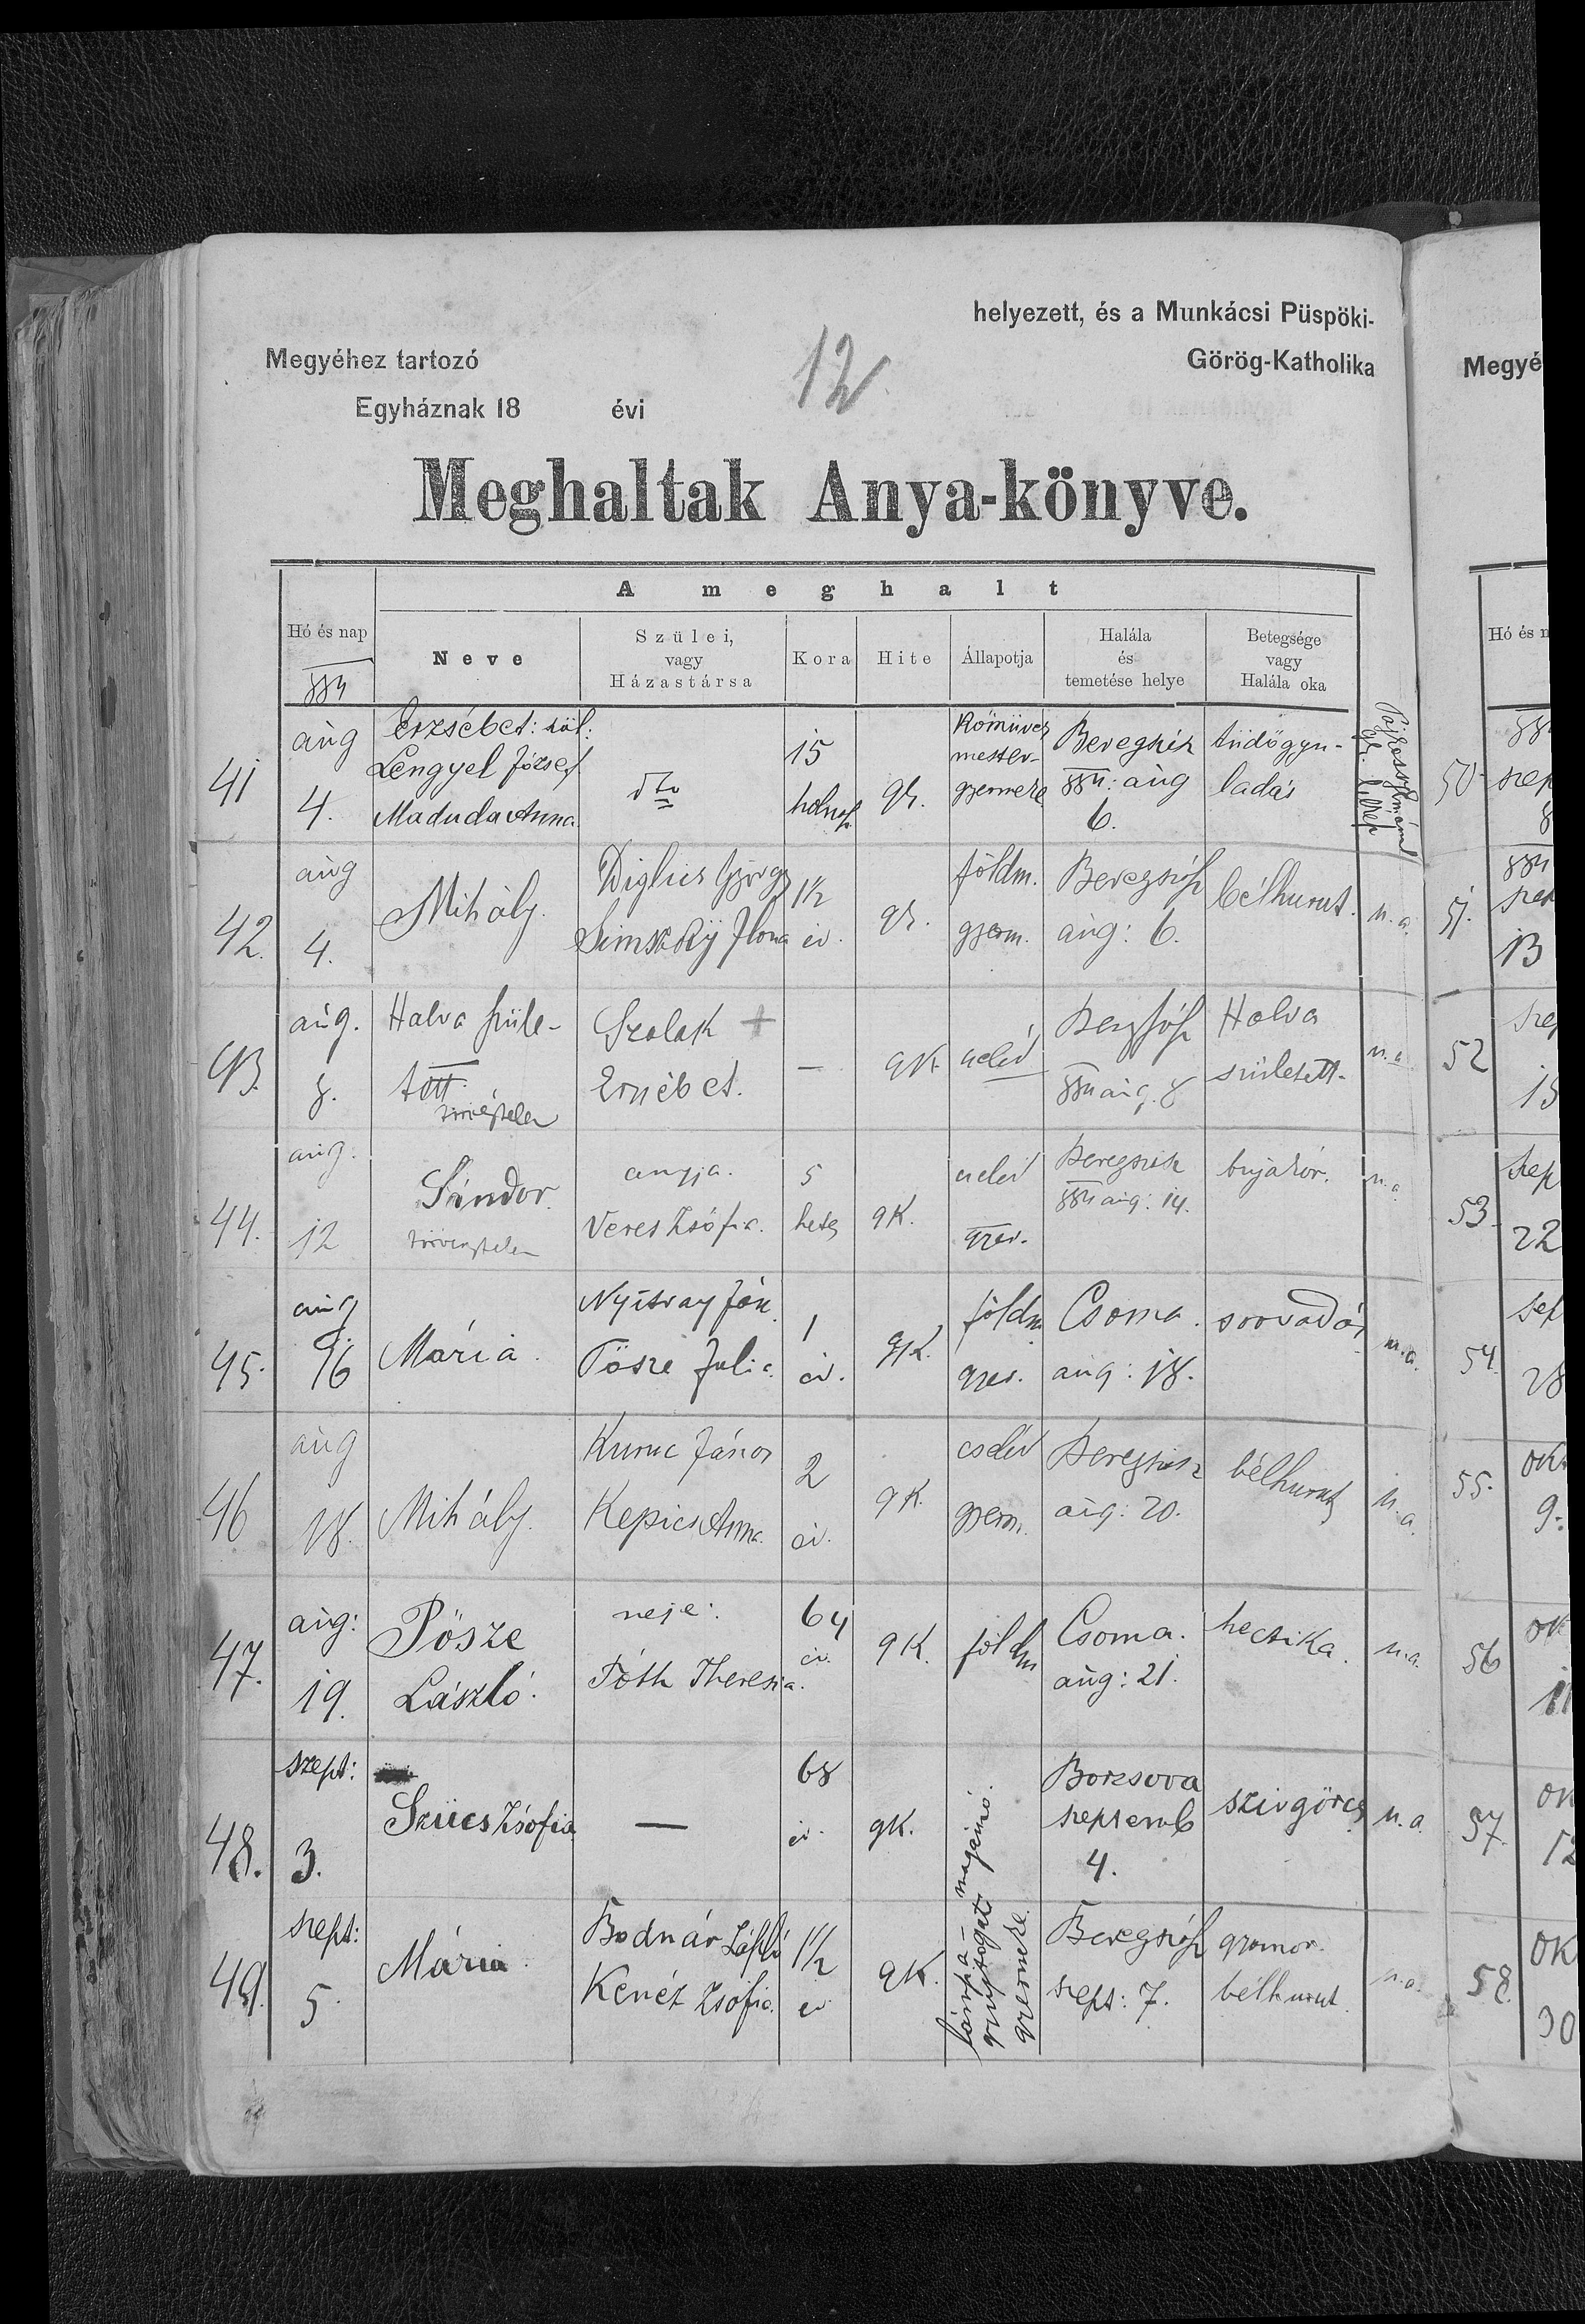 helyezett, és a Munkácsi Püspöki-
Megyéhez tartozó
12
Görög-Katholika
Egyháznak 18 évi
Meghaltak Anya-könyve.
A meghalt
Hó és nap
Neve
Szülei,
vagy
Házastársa
Kora
Hite
Állapotja
Halála
és
temetése helye
Betegsége
vagy
Halála oka
41
aug
4.
Erzsébet: szül.
Lengyel József
Maduda Anna
dto
15
holnap.
gk.
Kőműves
mester-
gyermeke
Beregszász
884: aug
6.
tüdőgyu-
ladás
42.
aug
4.
Mihály.
György
Simszkÿ Ilona
1½
év.
gk.
földm.
gyerm.
Beregszász
aug: 6.
bélhurut.
n.a.
43.
aug.
8.
Halva szüle-
tett.
törvénytelen
Szolak +
Erzsébet.
—
gk
cseléd
884 aug. 8
Halva
született.
n.a
44.
aug.
12
Sándor.
törvénytelen
anyja.
Veres Zsófia.
5
hetes
gK.
cseléd
gyer.
Beregszász
884 aug: 14.
bujakór.
n.a
45.
aug
16
Mária.
Nyitray Ján.
Pősze Julia.
1
év.
gk.
földm
gyer.
Csoma.
aug: 18.
sorvadás
n.a.
46
aug
18.
Mihály.
Kuruc János
Kepics Anna.
2
év.
gK.
cseléd
gyerm.
Beregszász
aug: 20.
bélhurut
n.a.
47.
aug:
19.
Pősze
László.
neje:
Tóth Theresia.
64
év.
gK.
földm
Csoma.
aug: 21.
hectika.
n.a.
48.
szept:
3.
Szücs Zsófia
—
68
év.
gK.
Borzsova
septemb
4.
szivgörcs
n.a.
49.
szept:
5.
Mária.
Bodnár László
Kenéz Zsófia.
1½
év
gK.
lámpa-
gyujtogató
gyermeke.
Beregszász
szept: 7.
gyomor.
bélhurut.
n.a.
Megyé
Hó és n
50
szep
8
51.
884
13
52
15
53.
szep
22
54.
28
55.
ok
9.
56
ok
11
57.
ok
12
58.
ok
30